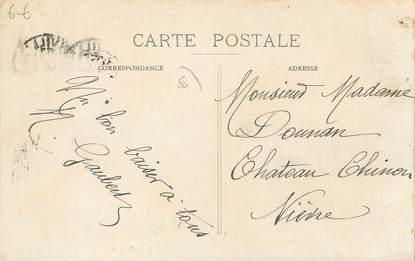 6€
CARTE POSTALE
CORRESPONDANCE
ADRESSE
bon baiser à tous
Gaubert
Monsieur Madame
Dounan
Chateau Chinon
Nièvre